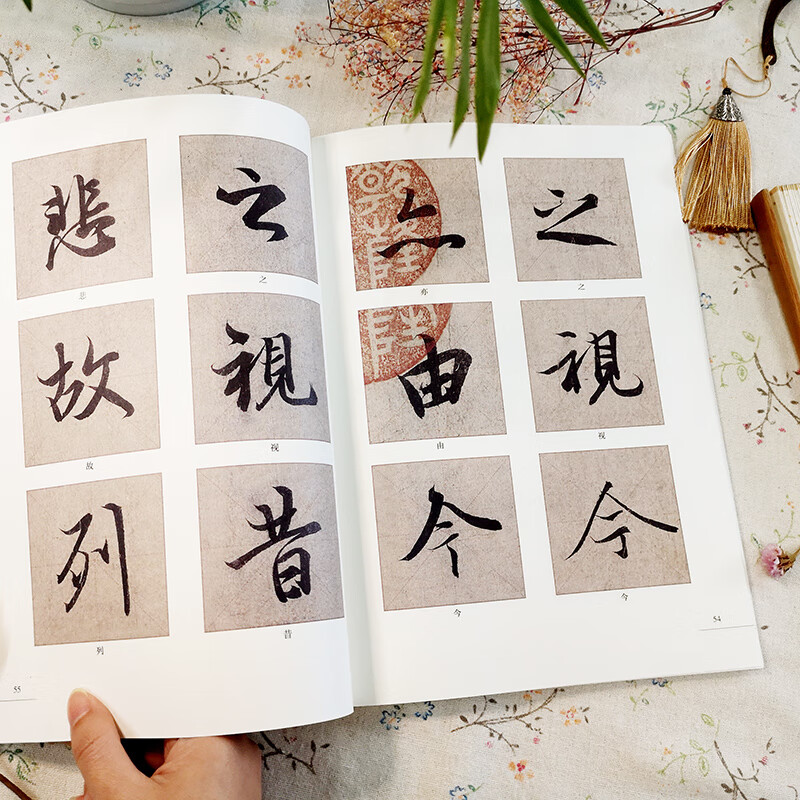 之
之
視
视
今
今
亦
亦
由
由
今
今
54
之
之
視
视
昔
昔
悲
悲
故
故
列
列
55